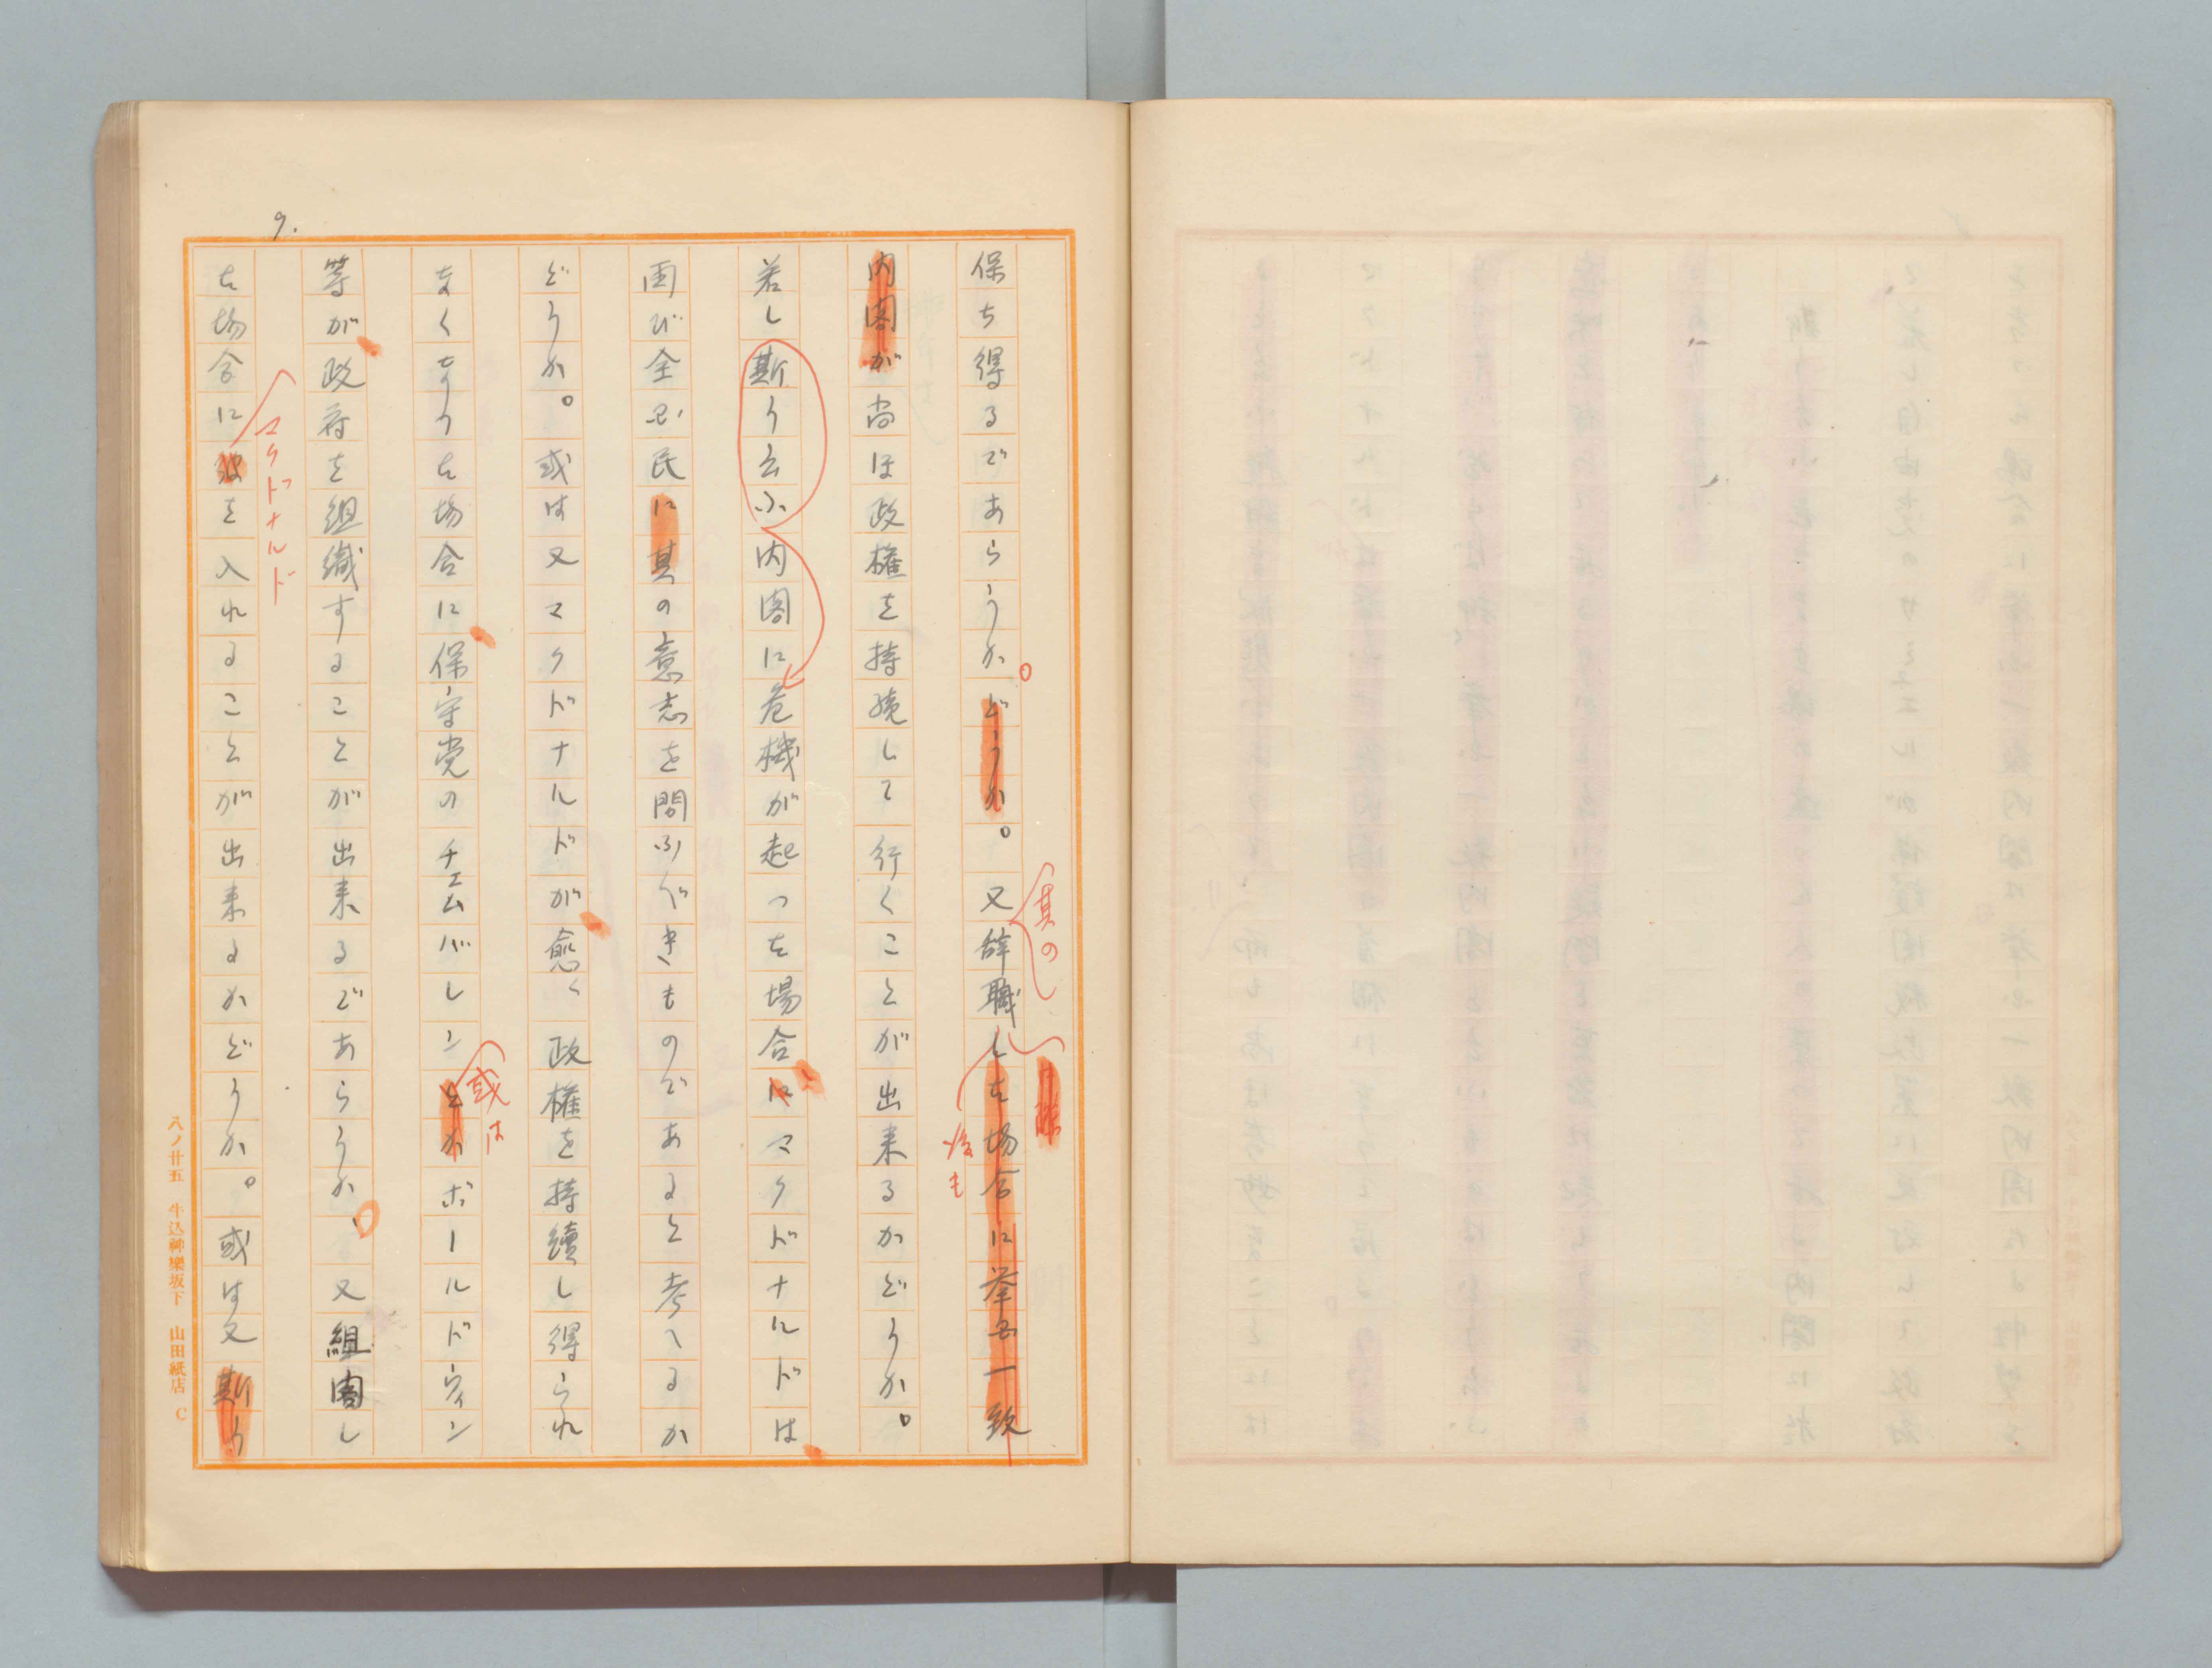 9.
保ち得るであらうか。どうか。又辞職した場合に挙国一致
其の
後も
内閣が尚ほ政権を持続して行くことが出来るかどうか。
若し斯う云ふ内閣に危機が起つた場合にマクドナルドは
再び全国民に其の意志を問ふべきものであると考へるか
どうか。或は又マクドナルドが愈く政権を持續し得られ
なくなつた場合に保守党のチェムバレンとかボールドウィン
或は
等が政府を組織することが出来るであらうか、。又組閣し
た場合に彼を入れることが出来るかどうか。或は又斯う
マクドナルド
八ノ廿五 牛込神樂坂下 山田紙店 C